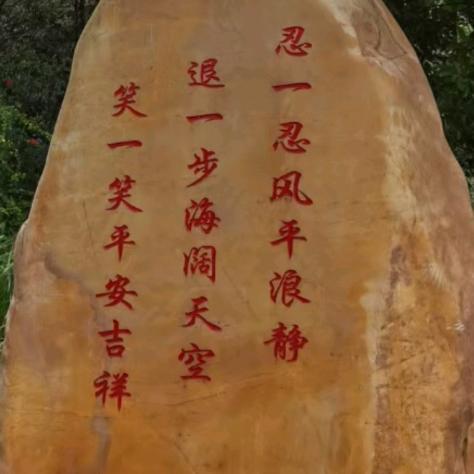 忍一忍风平浪静
退一步海阔天空
笑一笑平安吉祥